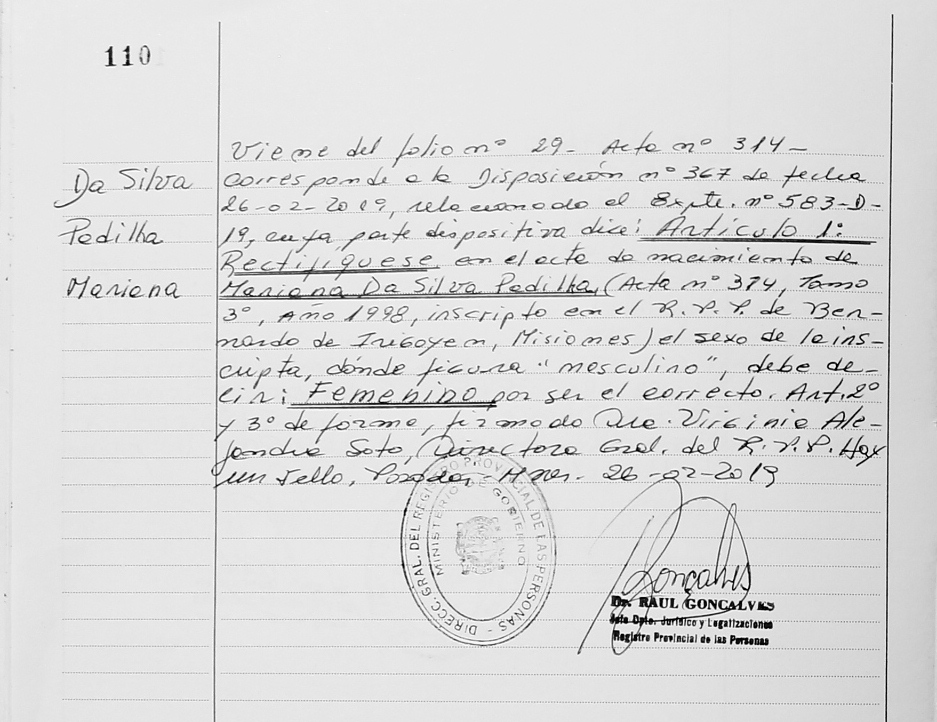 110
Da Silva
Pedilha
Mariana
Viene del folio nº 29- Acta nº 314-
corresponde a la Disposición nº 367 de fecha
26-02-2019, relacionado al Expte. nº 583-D-
19, cuya parte dispositiva dice: Artículo 1:
Rectifíquese en el acta de nacimiento de
Mariana Da Silva Pedilha, (Acta nº 314, Tomo
3º, Año 1998, inscripto en el R.P.P. de Ber-
nardo de Irigoyen, Misiones) el sexo de la ins-
cripta, dónde figura "masculino", debe de-
cir: Femenino por ser el correcto. Art. 2º
y 3º de forma, firmado Dra. Virginia Ale-
jandra Soto, Directora Gral. del R.P.P. Hay
un sello, Posadas, Mnes. 26-02-2019
DIRECC. GRAL. DEL REGISTRO PROVINCIAL DE LAS PERSONAS -
MINISTERIO DE GOBIERNO
Goncalves
Dr. RAUL GONCALVES
Jefe Dpto. Jurídico y Legalizaciones
Registro Provincial de las Personas